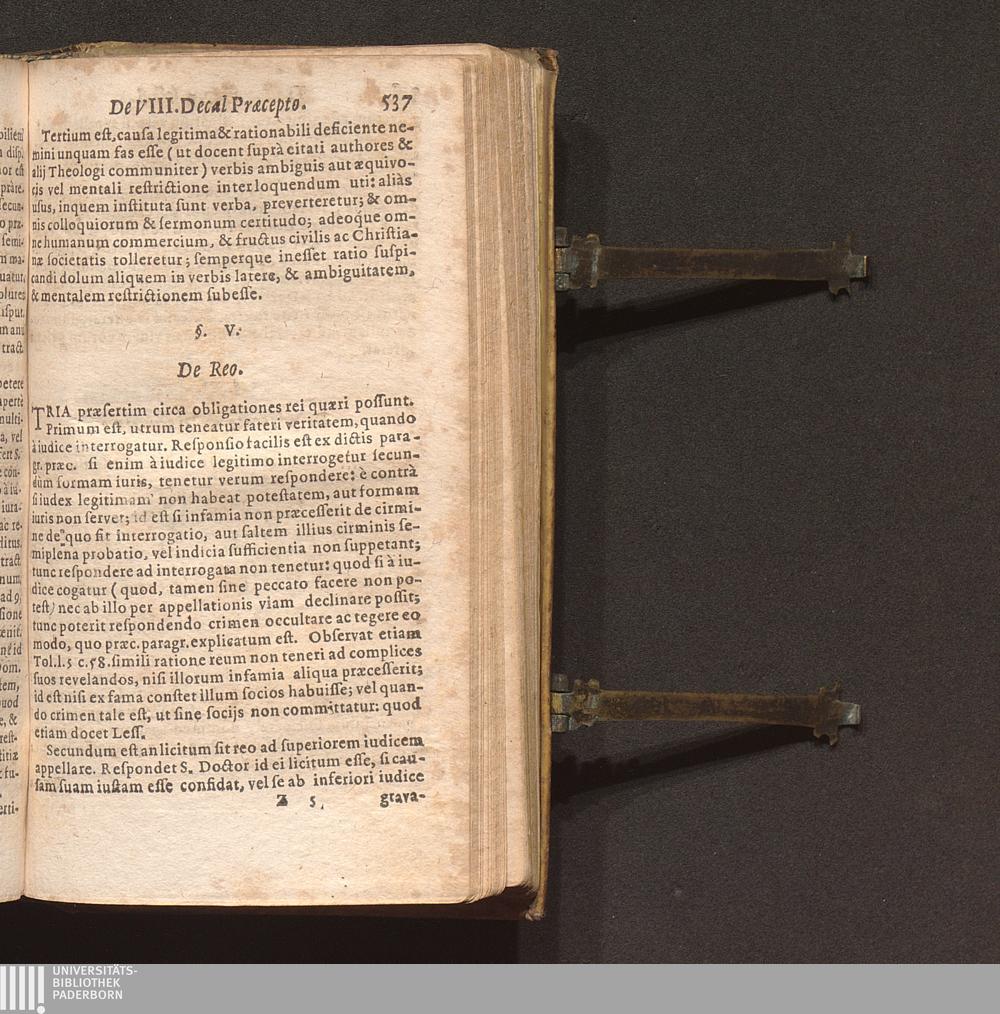 De VIII. Decal Præcepto. 537
Tertium eſt, cauſa legitima & rationabili deficiente ne-
mini unquam fas eſſe ( ut docent ſuprà citati authores &
alij Theologi communiter ) verbis ambiguis aut æquivo-
cis vel mentali reſtrictione interloquendum uti: aliàs
uſus, inquem inſtituta ſunt verba, preverteretur; & om-
nis colloquiorum & ſermonum certitudo; adeoque om-
ne humanum commercium, & fructus civilis ac Chriſtia-
næ ſocietatis tolleretur; ſemperque ineſſet ratio ſuſpi-
candi dolum aliquem in verbis latere, & ambiguitatem,
& mentalem reſtrictionem ſubeſſe.
§. V.
De Reo.
TRIA præſertim circa obligationes rei quæri poſſunt.
Primum eſt, utrum teneatur fateri veritatem, quando
à iudice interrogatur. Reſponſio facilis eſt ex dictis para-
gr. præc. ſi enim à iudice legitimo interrogetur ſecun-
dùm formam iuris, tenetur verum reſpondere: è contrà
ſi iudex legitimam non habeat poteſtatem, aut formam
iuris non ſervet; id eſt ſi infamia non præceſſerit de cirmi-
ne de quo fit interrogatio, aut ſaltem illius cirminis ſe-
miplena probatio, vel indicia ſufficientia non ſuppetant;
tunc reſpondere ad interrogata non tenetur: quod ſi à iu-
dice cogatur ( quod, tamen ſine peccato facere non po-
teſt) nec ab illo per appellationis viam declinare poſſit;
tunc poterit reſpondendo crimen occultare ac tegere eo
modo, quo præc. paragr. explicatum eſt. Obſervat etiam
Tol. l. 5 c. 58. ſimili ratione reum non teneri ad complices
ſuos revelandos, niſi illorum infamia aliqua præceſſerit;
id eſt niſi ex fama conſtet illum ſocios habuiſſe; vel quan-
do crimen tale eſt, ut ſine ſocijs non committatur: quod
etiam docet Leſſ.
Secundum eſt an licitum ſit reo ad ſuperiorem iudicem
appellare. Reſpondet S. Doctor id ei licitum eſſe, ſi cau-
ſam ſuam iuſtam eſſe confidat, vel ſe ab inferiori iudice
Z 5. grava-
UNIVERSITÄTS-
BIBLIOTHEK
PADERBORN